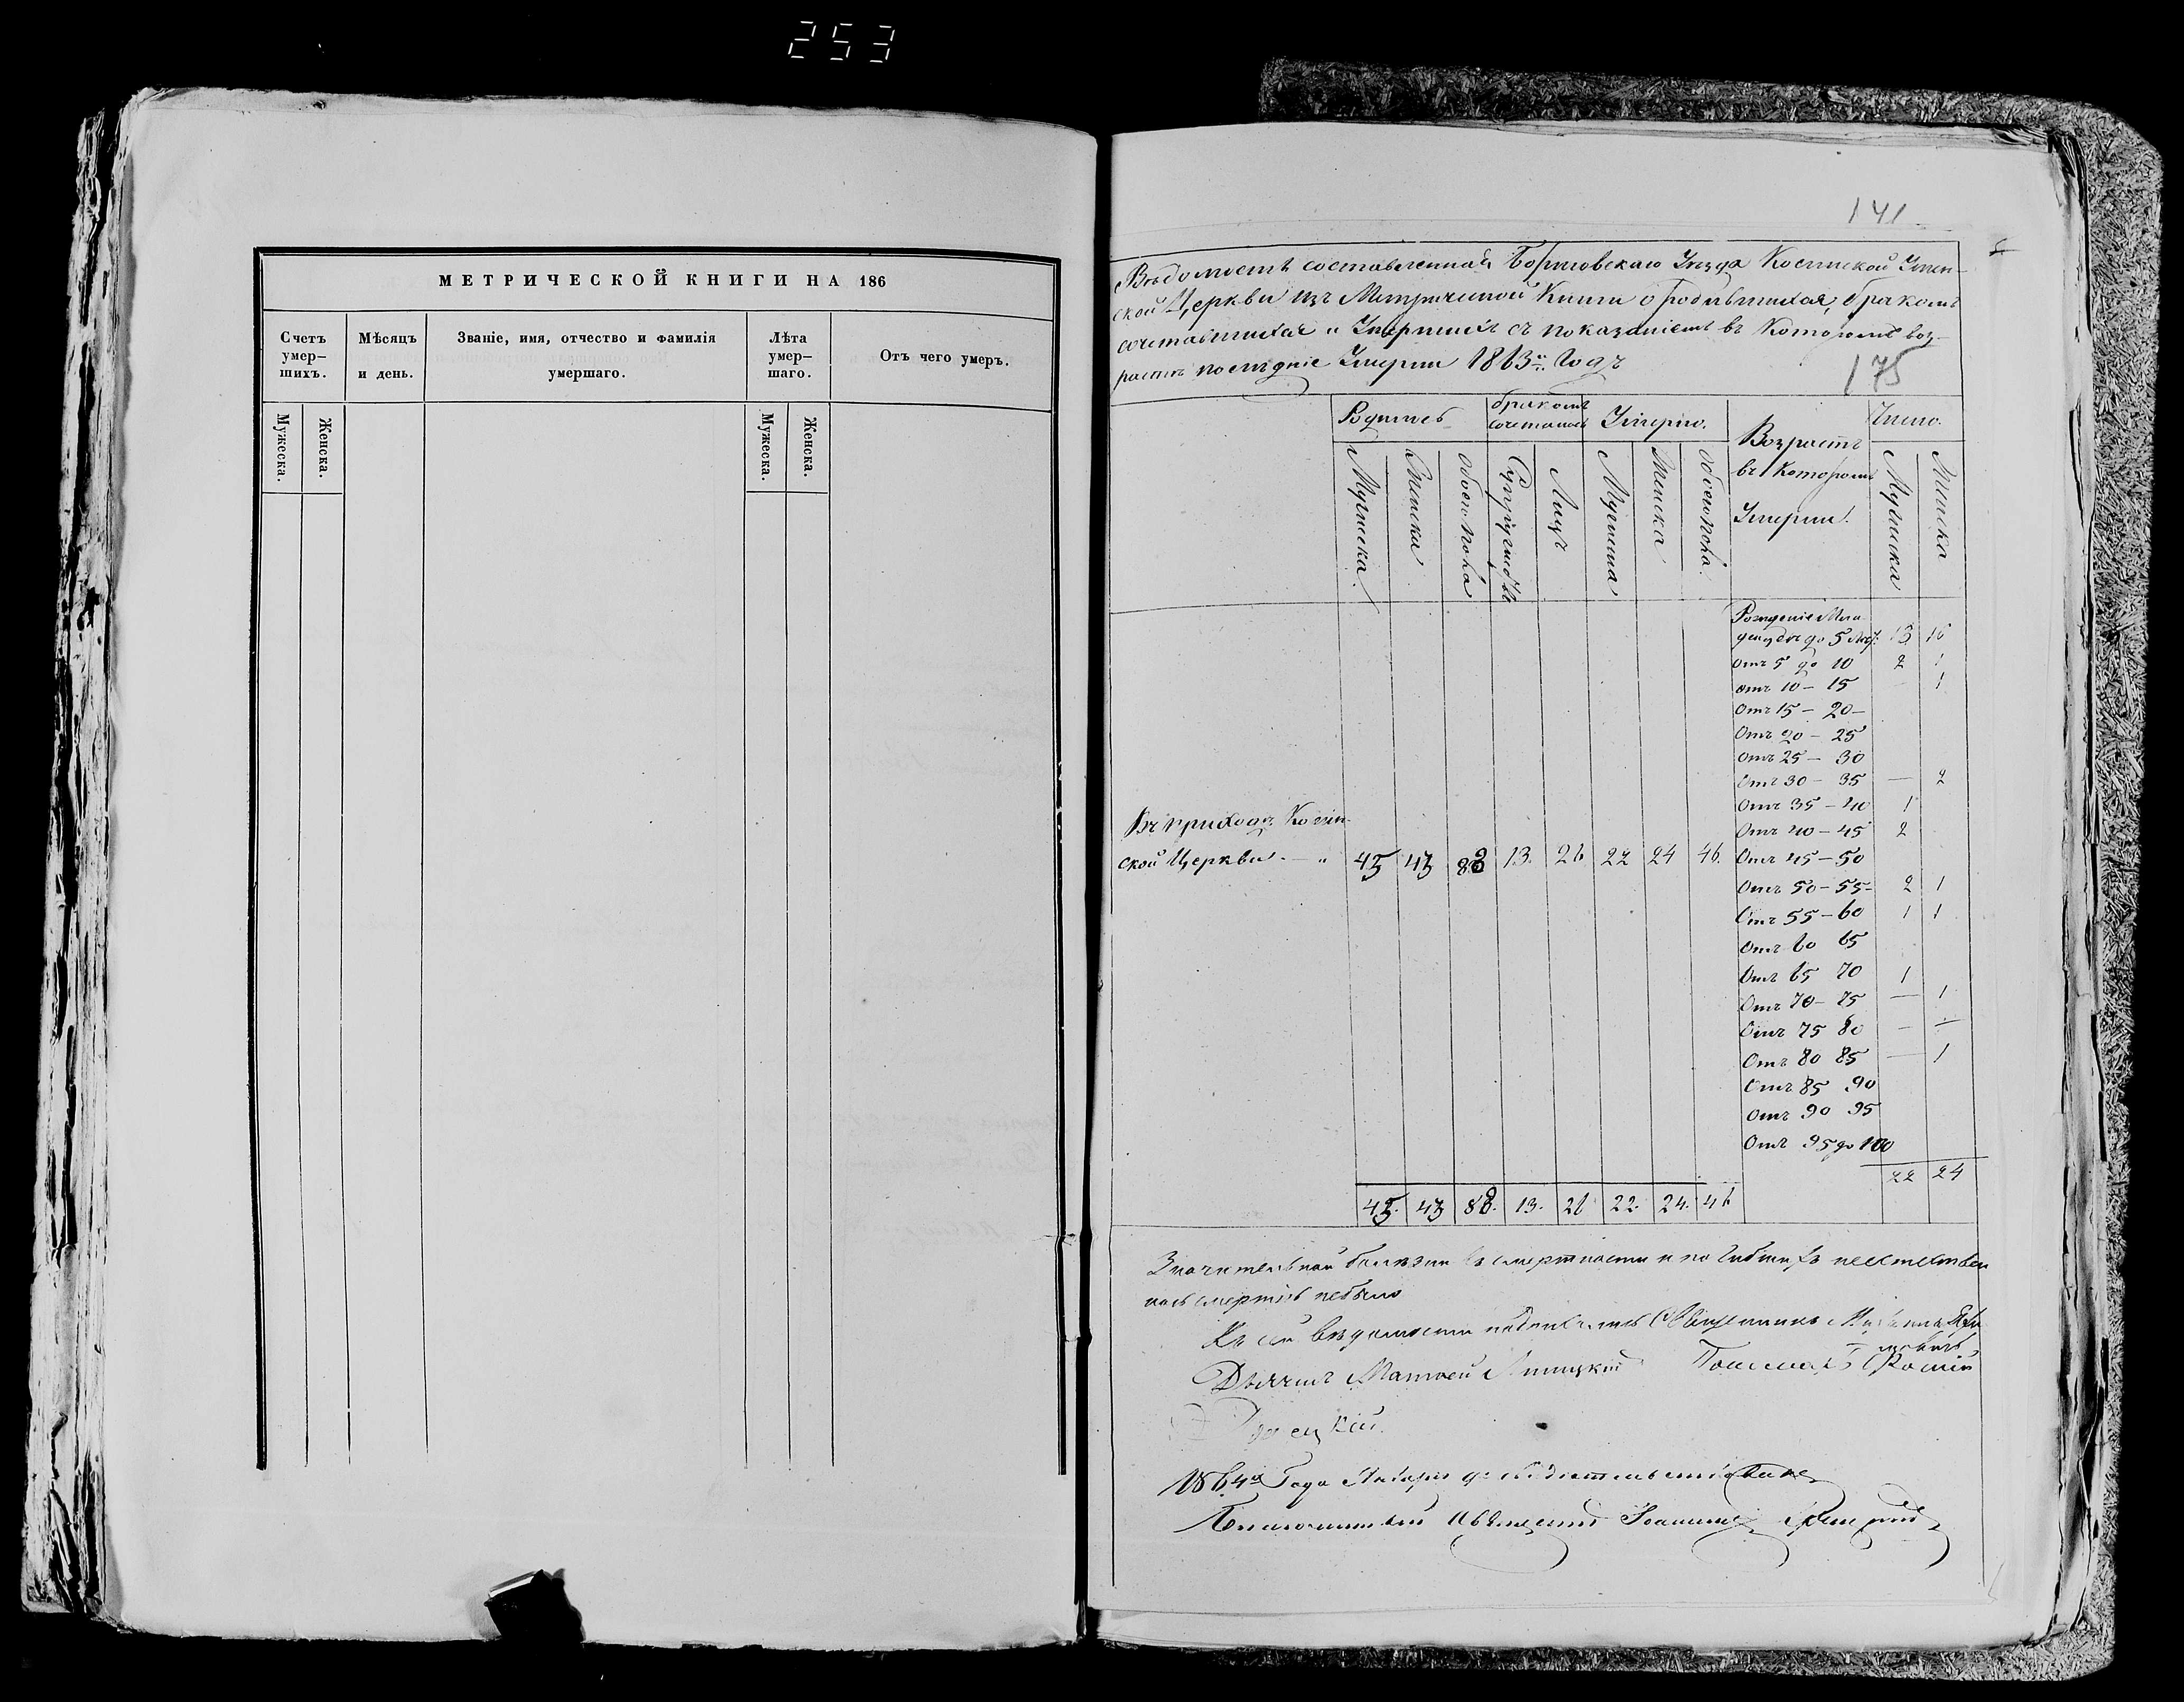 253
МЕТРИЧЕСКОЙ КНИГИ НА 186
Счетъ умер-шихъ.
Мѣсяцъ и день.
Званіе, имя, отчество и фамилія умершаго.
Лѣта умер-шаго.
Отъ чего умеръ.
Мужеска. Женска.
Мужеска. Женска.
141
Вѣдомость составленная уѣзда
ской Церкви изъ Метрической Книги о родившихся, бракомъ
сочетавшихся и Умершихъ съ показаніемъ въ Которомъ воз-
растѣ послѣдніе Умерли 1863го Года
175
Родилось
бракомъ сочеталось
Умерло.
Возрастъ въ Которомъ Умерли.
Число.
Мужеска Женска обоего пола
Супружествъ Лицъ
Мужеска Женска обоего пола
Мужеска Женска
до 5 13 16
Отъ 5 до 10 2 1
Отъ 10 – 15 – 1
Отъ 15 – 20 –
Отъ 20 – 25
Отъ 25 – 30
Отъ 30 – 35 — 2
Отъ 35 – 40 1
Отъ 40 – 45 2
Въ приходѣ
ской Церкви – „ 45 43 88 13. 26 22 24 46.
Отъ 45 – 50
Отъ 50 – 55 – 2 1
Отъ 55 – 60 1 1
Отъ 60 65
Отъ 65 70 1
Отъ 70 – 75 — 1
Отъ 75 80 — —
Отъ 80 85 — 1
Отъ 85 90
Отъ 90 95
Отъ 95 до 100
22 24
45. 43 88. 13. 26 22. 24. 46
Значительной болѣзни въ смертности и погибшихъ неестествен
ною смертію небыло
Къ сей вѣдомости подписались Священникъ
Дьячекъ Матвей Пономарь
1864го Года Января
Благочинный Священникъ Іоаннъ